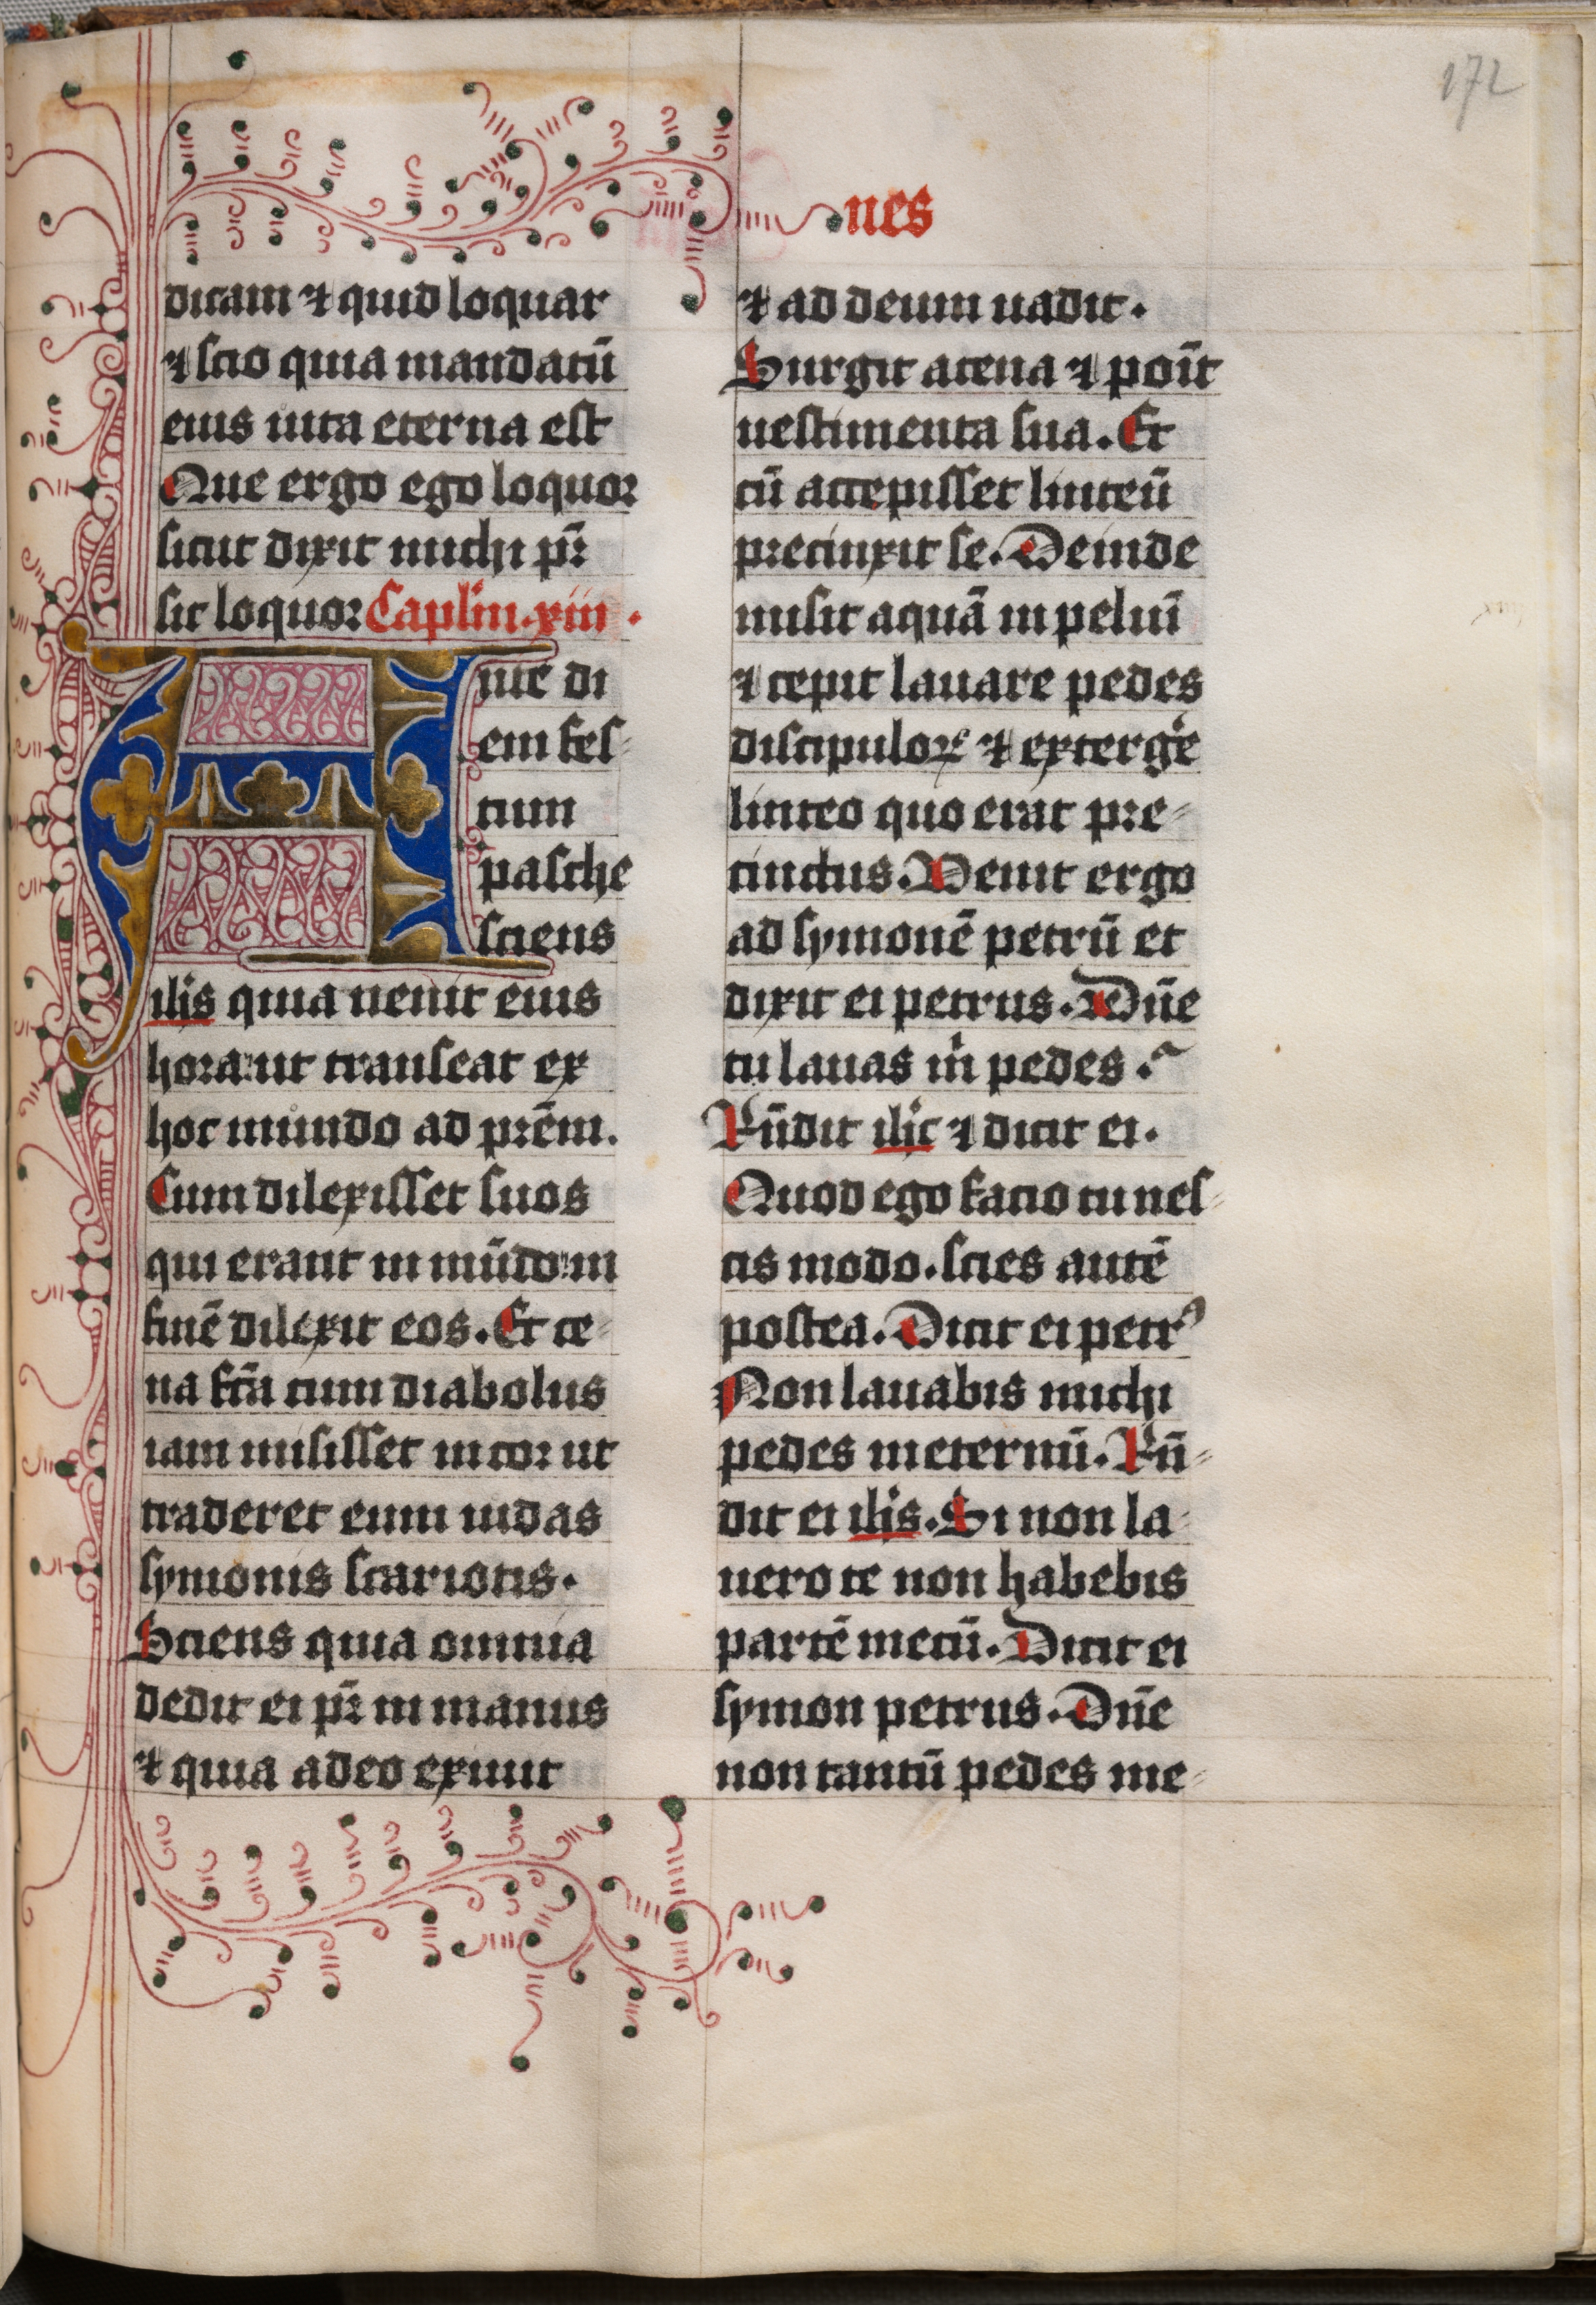 172
nes
dicam ⁊ quid loquar
⁊ scio quia mandatū
eius uita eterna est
Que ergo ego loquor
sicut dixit michi pr̄
sic loquor Caplm̄. xiii.
Ante di
em fes-
tum
pasche
sciens
ihs̄ quia uenit eius
hora: ut transeat ex
hoc mundo ad prēm.
Cum dilexisset suos
qui erant in mūdo: in
finē dilexit eos. Et ce-
na fc̄a cum diabolus
iam misisset in cor ut
traderet eum iudas
symonis scariotis.
Sciens quia omnia
dedit ei pr̄ in manus
⁊ quia a deo exiuit
⁊ ad deum uadit.
Surgit a cena ⁊ poīt
uestimenta sua. Et
cū accepisset linteū
precinxit se. Deinde
misit aquā in peluī
⁊ cepit lauare pedes
discipuloꝝ ⁊ exterge͛
linteo quo erat pre-
cinctus. Venit ergo
ad symonē petrū et
dixit ei petrus. Dn̄e
tu lauas m̄ pedes?
Rn̄dit ihc̄ ⁊ dicit ei.
Quod ego facio tu nes-
cis modo. scies autē
postea. Dicit ei petrꝰ
Non lauabis michi
pedes in eternū. Rn̄-
dit ei ihs̄. Si non la-
uero te non habebis
partē mecū. Dicit ei
symon petrus. Dn̄e
non tantū pedes me-